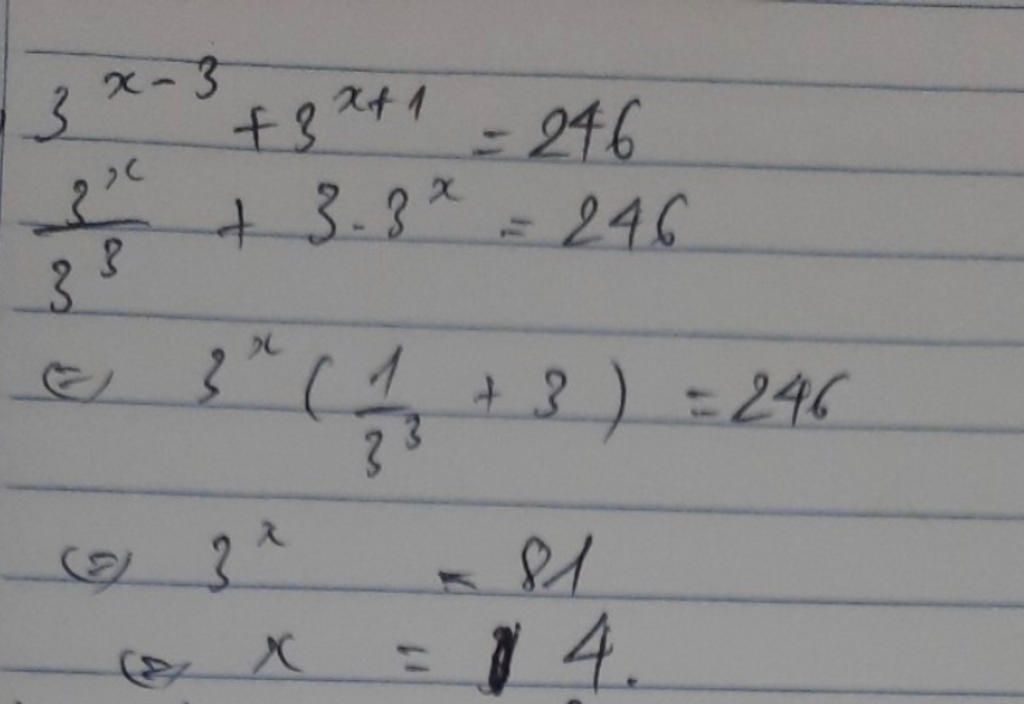 3^{x-3} + 3^{x+1} = 246
\frac{3^x}{3^3} + 3 \cdot 3^x = 246
⇔ 3^x ( \frac{1}{3^3} + 3 ) = 246
⇔ 3^x = 81
⇔ x = 4.